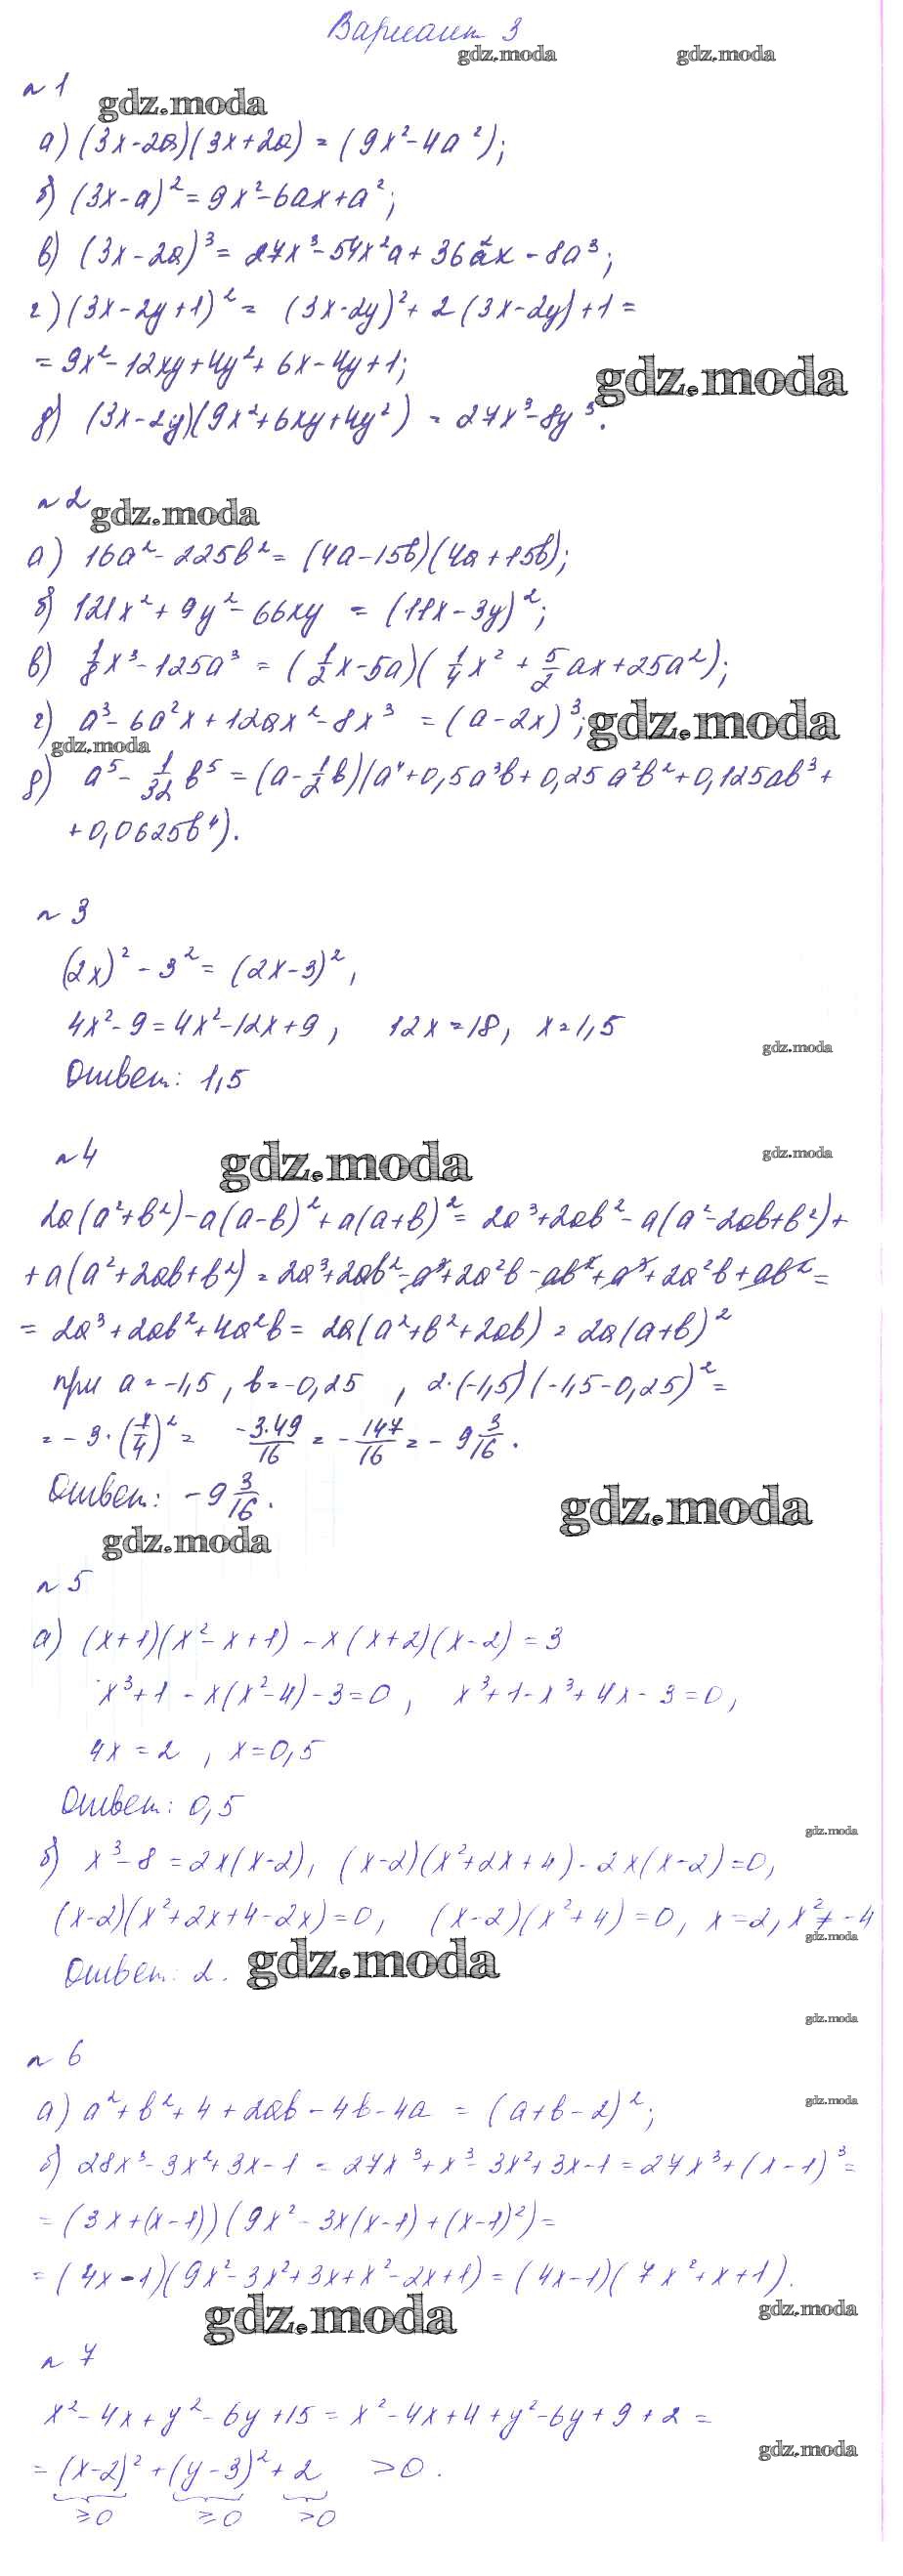 Вариант 3
gdz.moda gdz.moda
№1
gdz.moda
а) (3x-2a)(3x+2a) = (9x²-4a²);
б) (3x-a)² = 9x²-6ax+a²;
в) (3x-2a)³ = 27x³-54x²a+36a²x-8a³;
г) (3x-2y+1)² = (3x-2y)²+2(3x-2y)+1=
=9x²-12xy+4y²+6x-4y+1;
gdz.moda
д) (3x-2y)(9x²+6xy+4y²) = 27x³-8y³.
№2
gdz.moda
а) 16a²-225b²=(4a-15b)(4a+15b);
б) 121x²+9y²-66xy = (11x-3y)²;
в) 1/8x³-125a³ = (1/2x-5a)(1/4x²+5/2ax+25a²);
г) a³-6a²x+12ax²-8x³ = (a-2x)³;
gdz.moda
gdz.moda
д) a⁵-1/32b⁵=(a-1/2b)(a⁴+0,5a³b+0,25a²b²+0,125ab³+
+0,0625b⁴).
№3
(2x)²-3²=(2x-3)²,
4x²-9=4x²-12x+9, 12x=18, x=1,5
gdz.moda
Ответ: 1,5
№4
gdz.moda
gdz.moda
2a(a²+b²)-a(a-b)²+a(a+b)²=2a³+2ab²-a(a²-2ab+b²)+
+a(a²+2ab+b²)=2a³+2ab²-a³+2a²b-ab²+a³+2a²b+ab²=
=2a³+2ab²+4a²b=2a(a²+b²+2ab)=2a(a+b)²
при a=-1,5, b=-0,25, 2·(-1,5)(-1,5-0,25)²=
=-3·(7/4)²= -3·49/16=-147/16=-9 3/16.
Ответ: -9 3/16.
gdz.moda
gdz.moda
№5
а) (x+1)(x²-x+1)-x(x+2)(x-2)=3
x³+1-x(x²-4)-3=0, x³+1-x³+4x-3=0,
4x=2, x=0,5
Ответ: 0,5
gdz.moda
б) x³-8=2x(x-2), (x-2)(x²+2x+4)-2x(x-2)=0,
(x-2)(x²+2x+4-2x)=0, (x-2)(x²+4)=0, x=2, x²≠-4
gdz.moda
Ответ: 2.
gdz.moda
gdz.moda
№6
а) a²+b²+4+2ab-4b-4a = (a+b-2)²;
gdz.moda
б) 28x³-3x²+3x-1=27x³+x³-3x²+3x-1=27x³+(x-1)³=
=(3x+(x-1))(9x²-3x(x-1)+(x-1)²)=
=(4x-1)(9x²-3x²+3x+x²-2x+1)=(4x-1)(7x²+x+1).
gdz.moda
gdz.moda
№7
x²-4x+y²-6y+15=x²-4x+4+y²-6y+9+2=
gdz.moda
=(x-2)²+(y-3)²+2 >0.
≥0 ≥0 >0